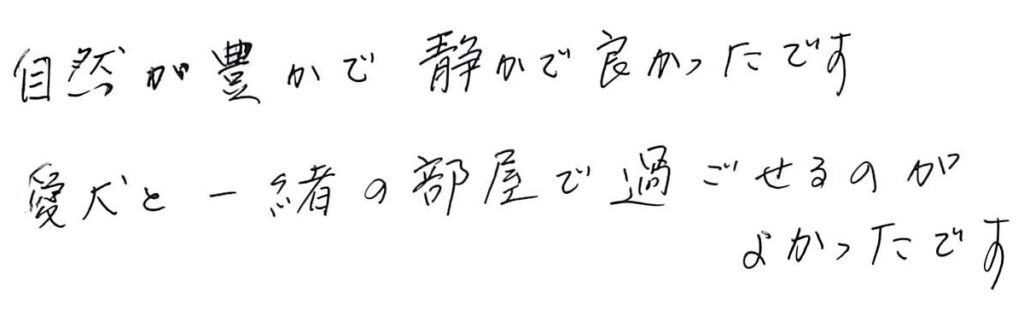 自然が豊かで静かで良かったです
愛犬と一緒の部屋で過ごせるのが
よかったです